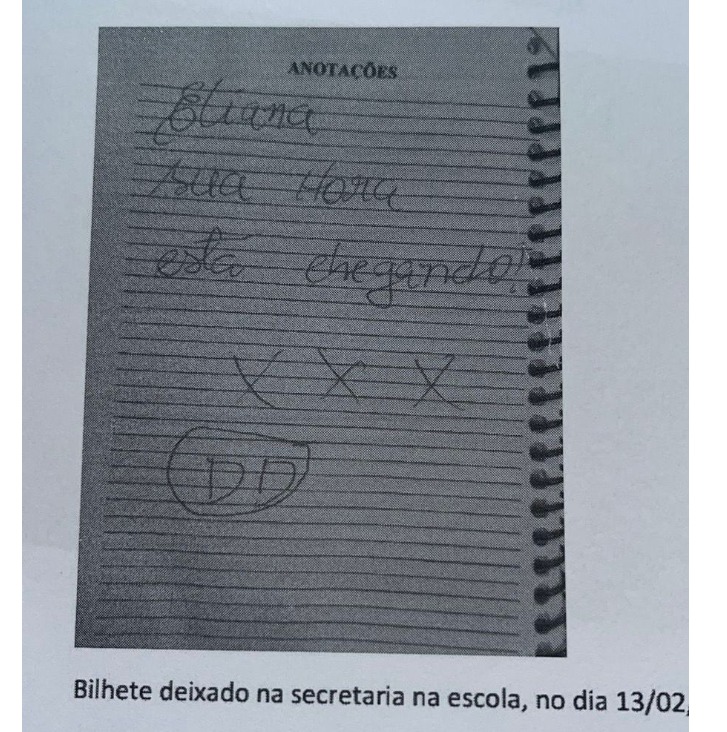 ANOTAÇÕES
Eliana
sua Hora
está chegando!
X X X
DD
Bilhete deixado na secretaria na escola, no dia 13/02,